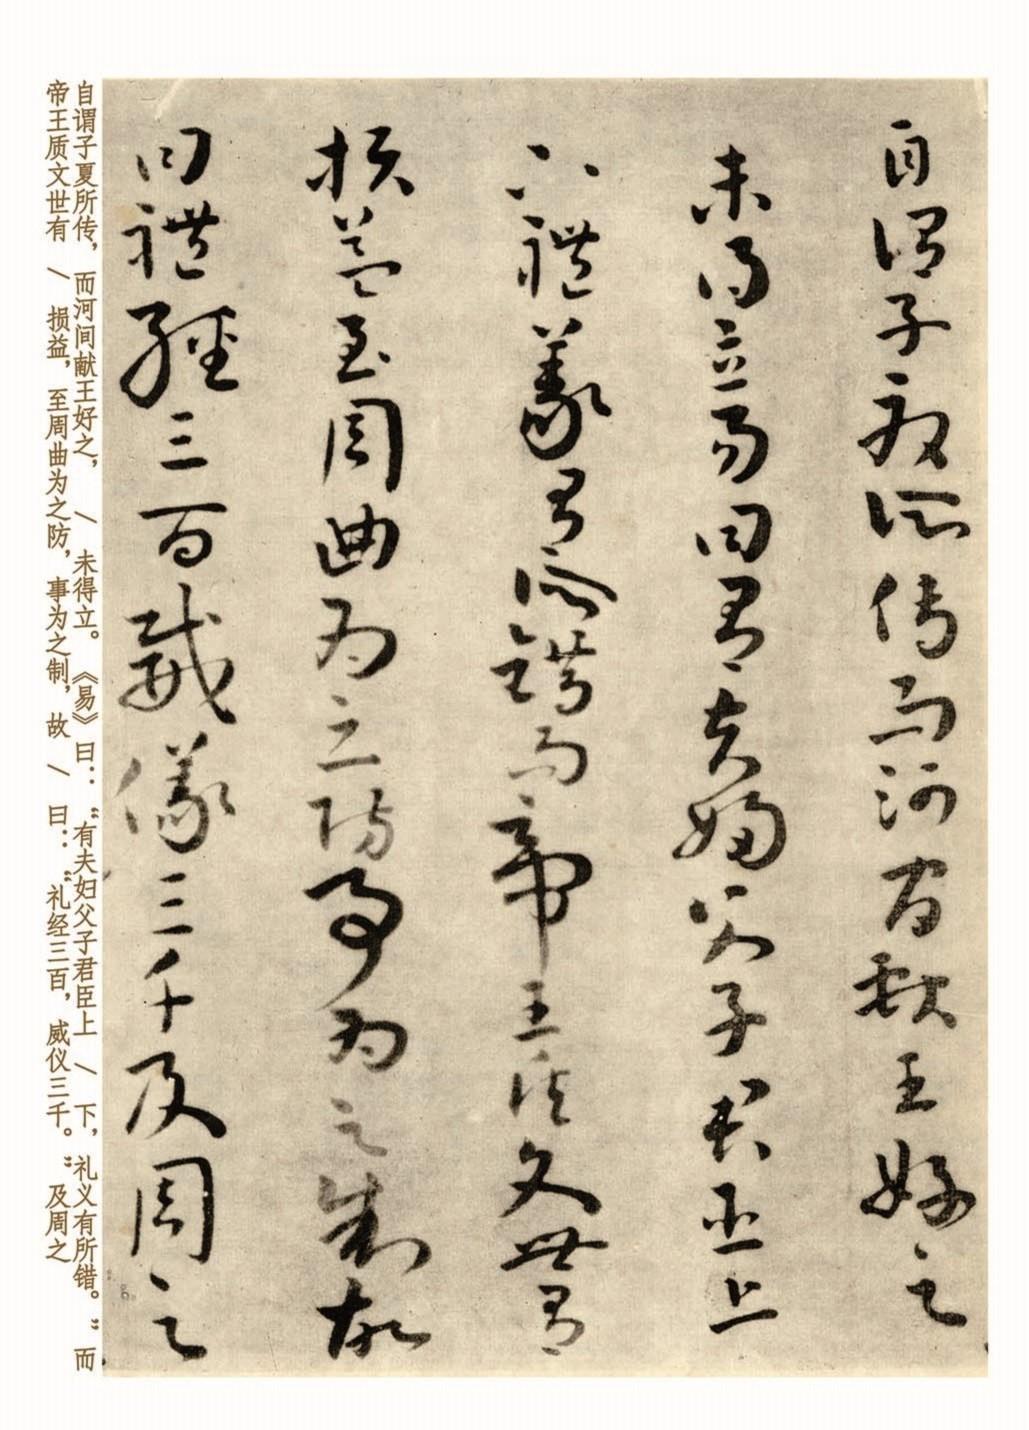 自谓子夏所传而河间献王好之
未得立易曰有夫妇父子君臣上
下礼义有所错而帝王质文世有
损益至周曲为之防事为之制故
曰礼经三百威仪三千及周之
自谓子夏所传，而河间献王好之， / 未得立。《易》曰：“有夫妇父子君臣上 / 下，礼义有所错。”而
帝王质文世有 / 损益，至周曲为之防，事为之制，故 / 曰：“礼经三百，威仪三千。”及周之